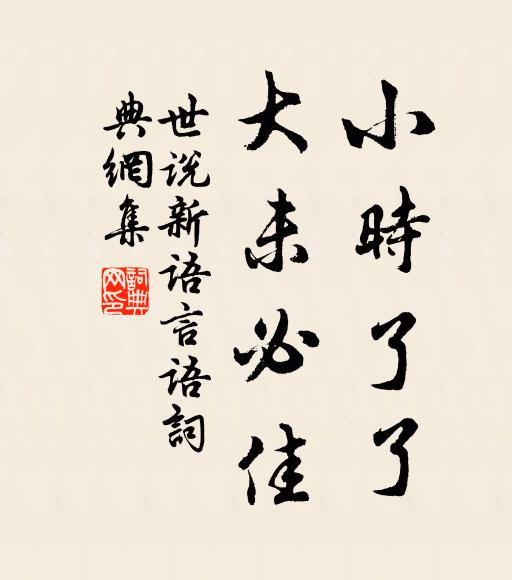 小時了了
大未必佳
世说新语言语詞
典網集
詞典
网印